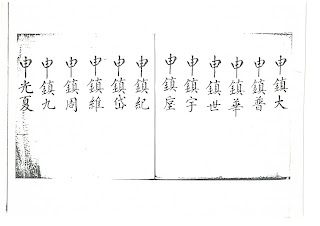 申鎮大
申鎮普
申鎮華
申鎮世
申鎮宇
申鎮
申鎮紀
申鎮岱
申鎮維
申鎮周
申鎮九
申光夏